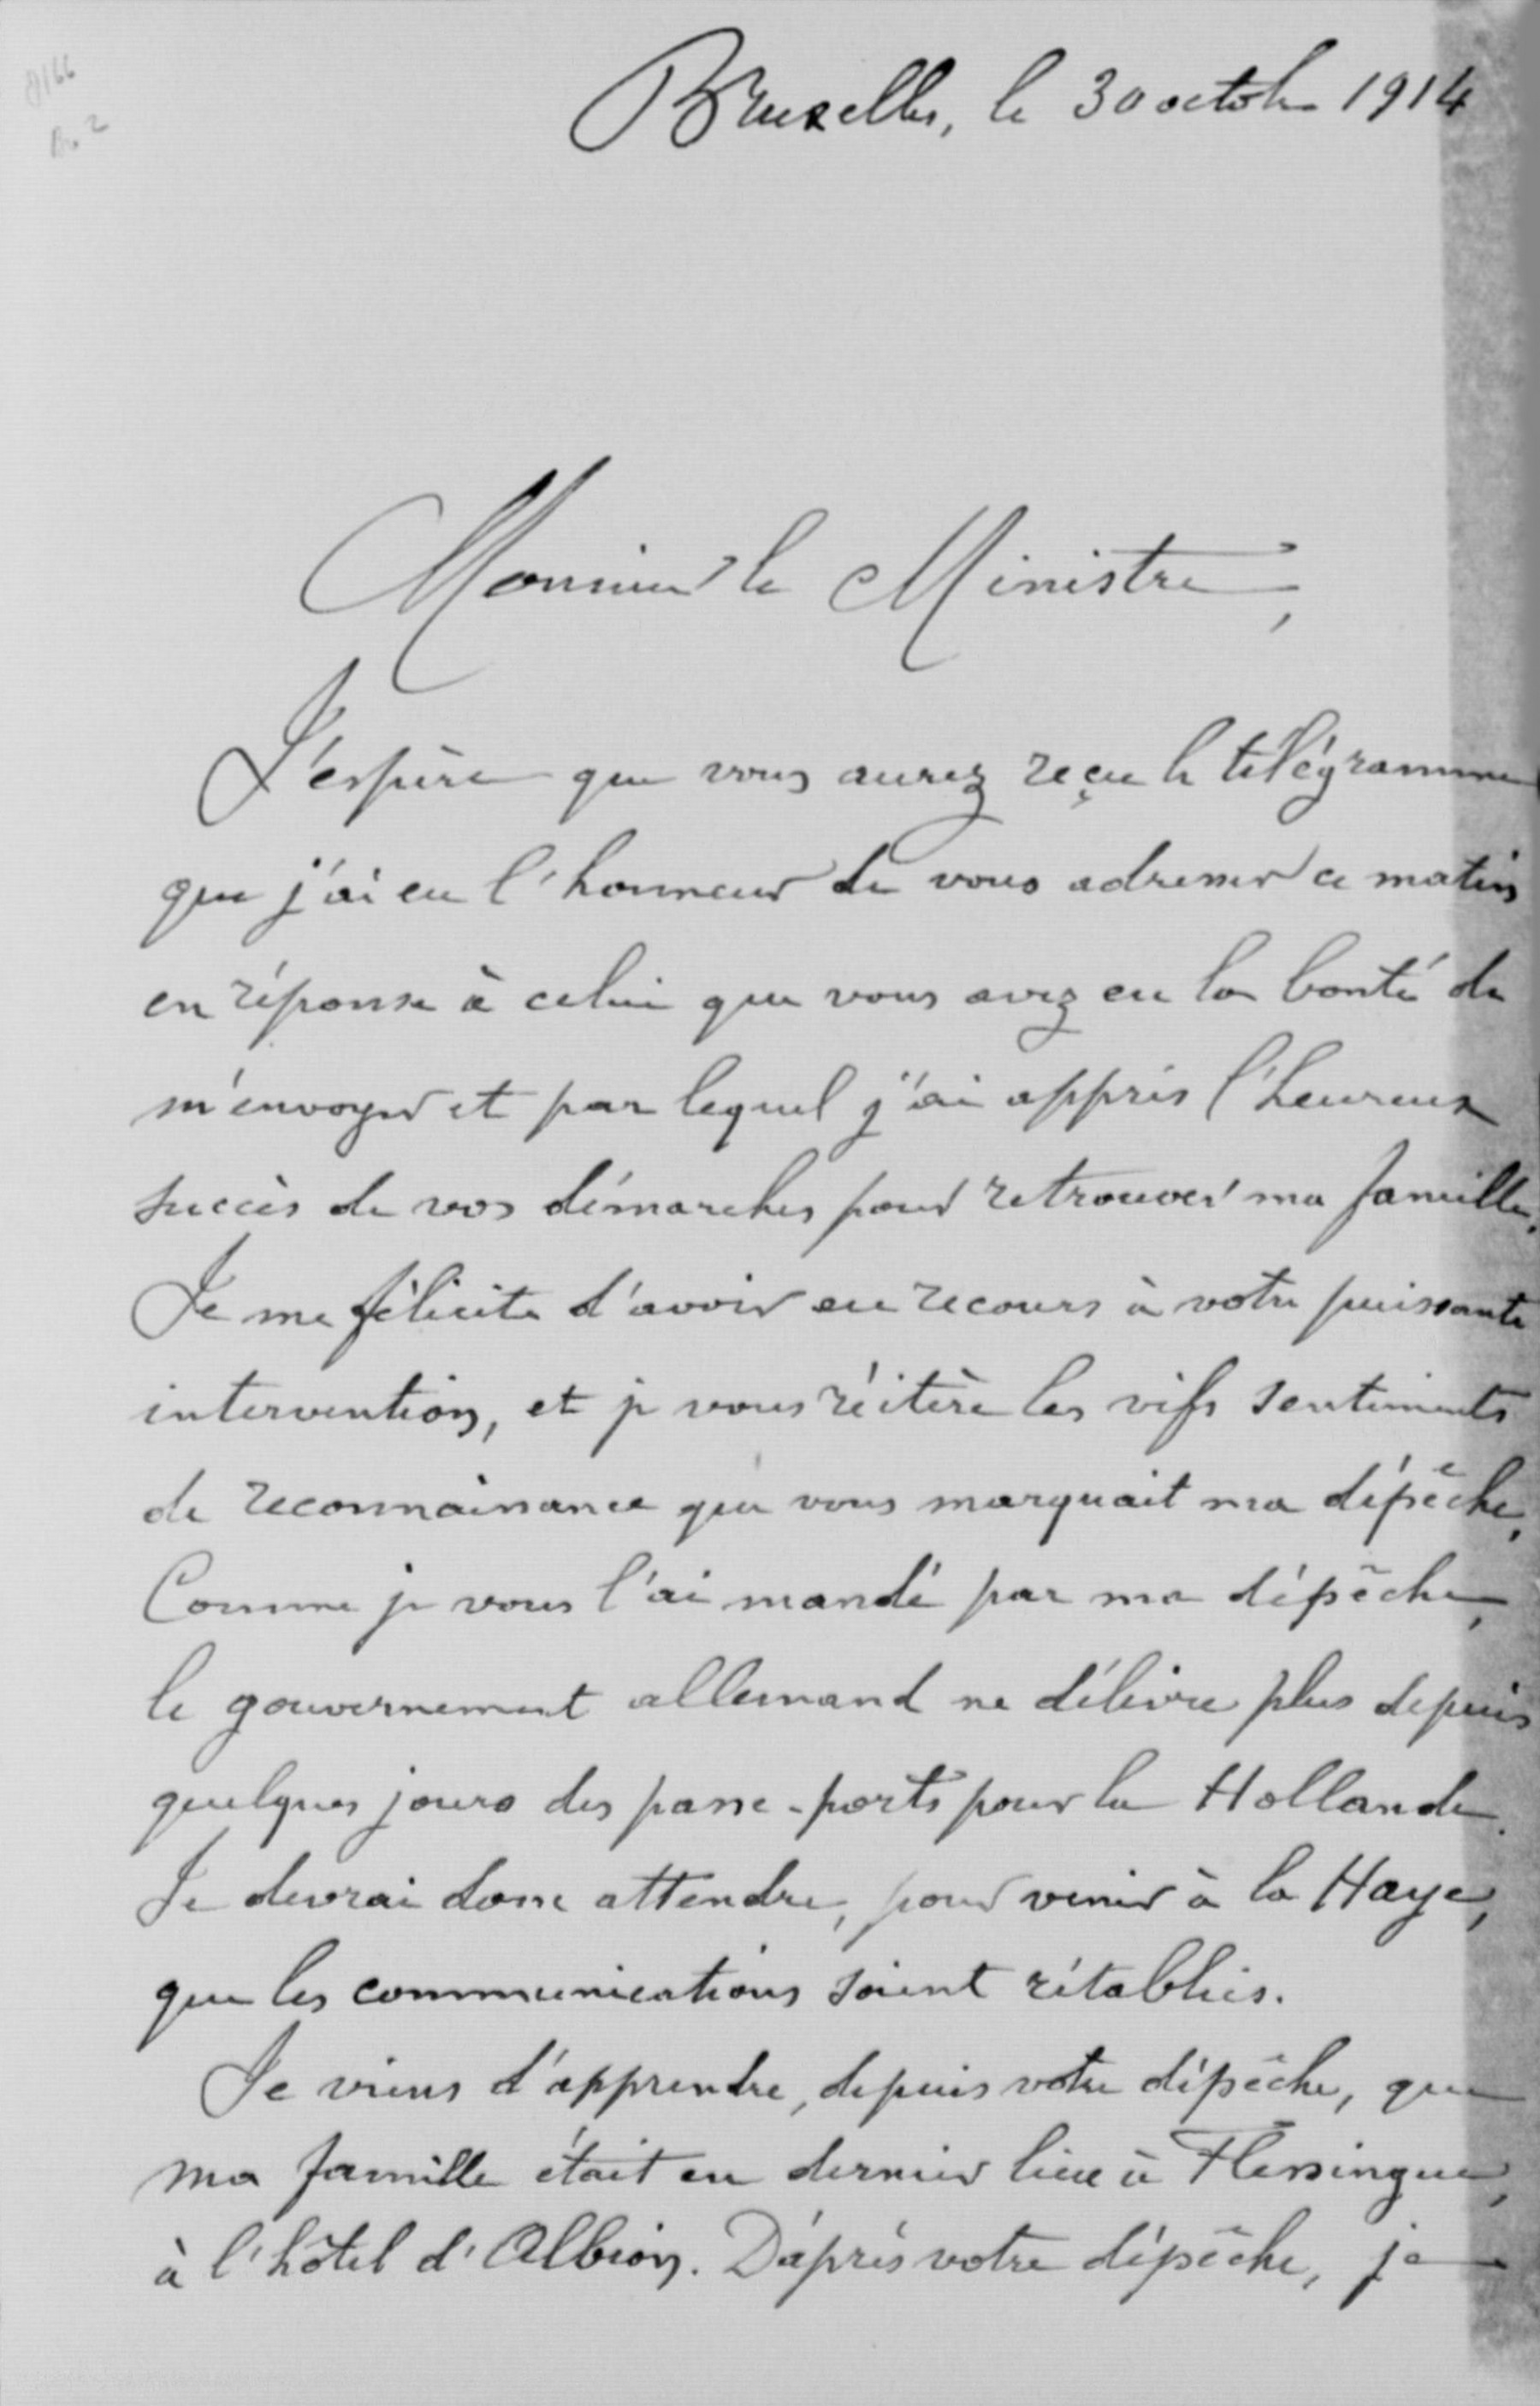 Bruxelles, le 30 octobre 1914
Monsieur le Ministre,
J'espère que vous aurez reçu le télégramme
que j'ai eu l'honneur de vous adresser ce matin
en réponse à celui que vous avez eu la bonté de
m'envoyer et par lequel j'ai appris l'heureux
succès de vos démarches pour retrouver ma famille.
Je me félicite d'avoir eu recours à votre puissante
intervention, et je vous réitère les vifs sentiments
de reconnaissance que vous marquait ma dépêche.
Comme je vous l'ai mandé par ma dépêche,
le gouvernement allemand ne délivre plus depuis
quelques jours des passe-ports pour la Hollande.
Je devrai donc attendre, pour venir à la Haye,
que les communications soient rétablies.
Je viens d'apprendre, depuis votre dépêche, que
ma famille était en dernier lieu à Flessingue,
à l'hôtel d'Albion. D'après votre dépêche, je